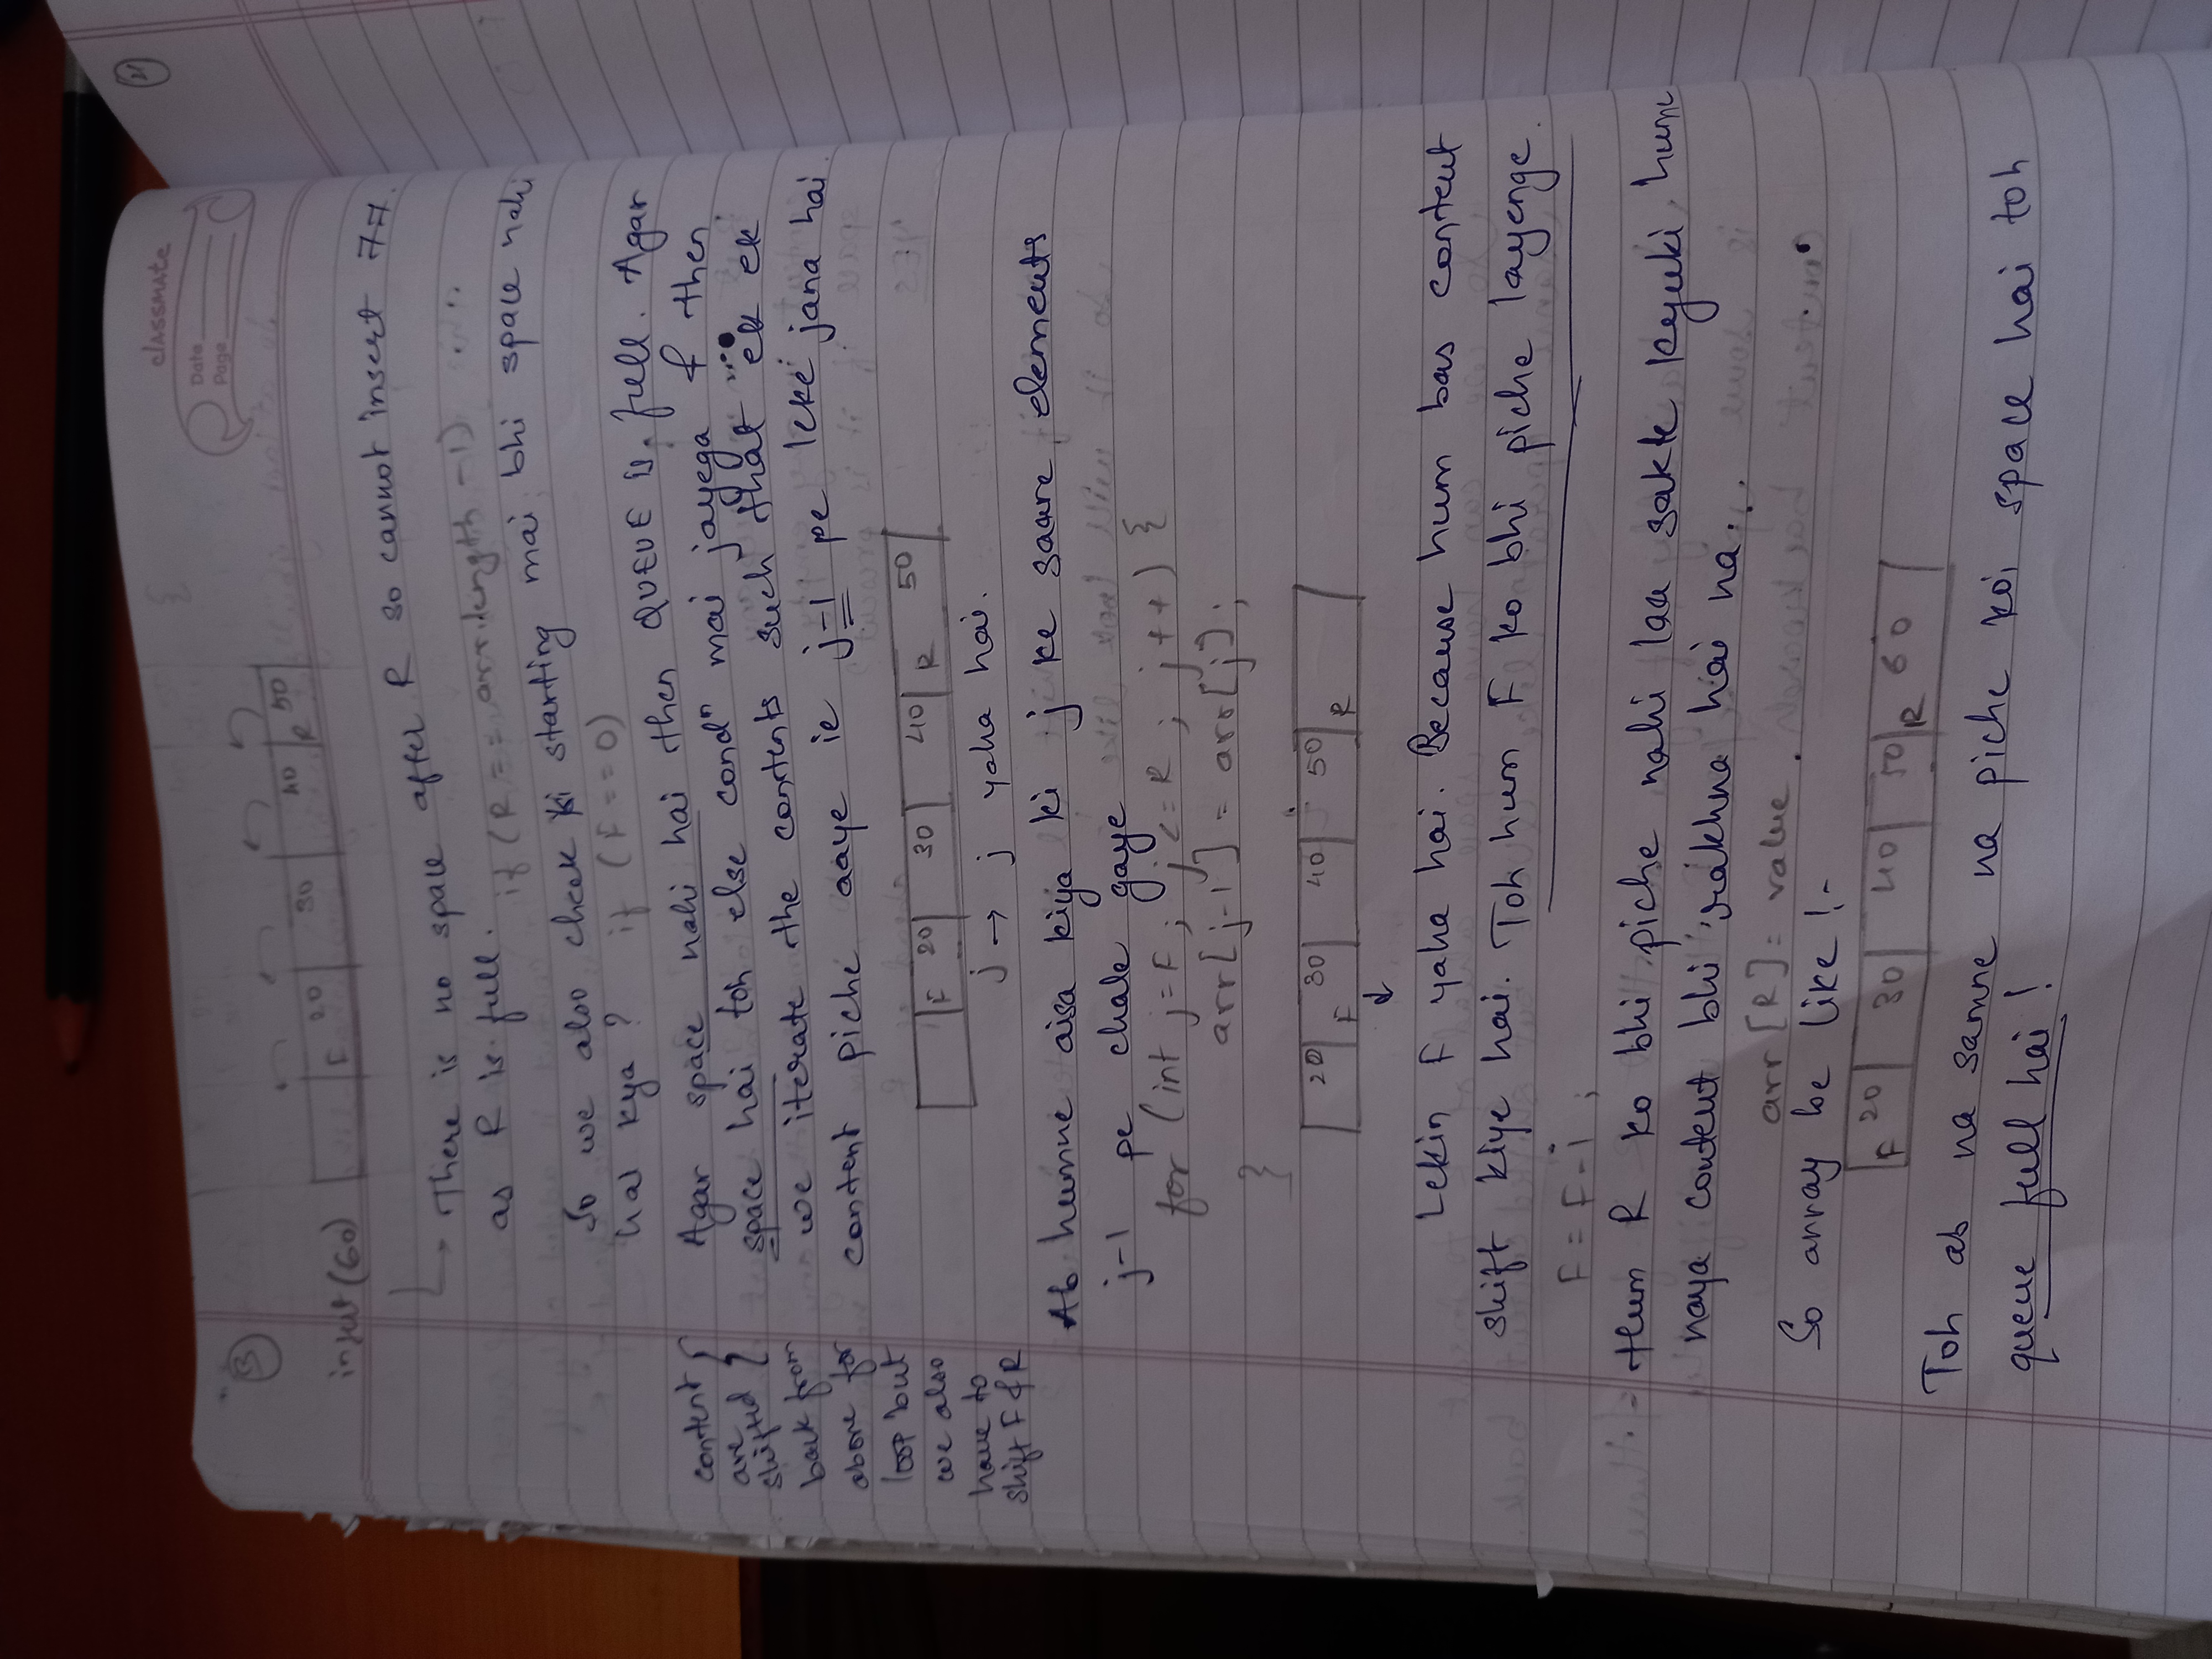 classmate
Date
Page
21
3
insert(60)
F 20 30 40 R 50
There is no space after R so cannot insert 77.
as R is full.
if (R == arr.length -1) ....
So we also check ki starting mai bhi space nahi
hai kya ? if (F == 0)
Agar space nahi hai then QUEUE is full. Agar
space hai toh else condⁿ mai jayega & then
we iterate the contents such that ek ek
content piche aaye ie j-1 pe leke jana hai
content
are
shifted
back from
above for
loop but
we also
have to
shift F & R
F 20 30 40 R 50
j → j yaha hai.
Ab humne aisa kiya ki j ke saare elements
j-1 pe chale gaye
for (int j=F ; j <= R ; j++) {
arr[j-1] = arr[j];
}
20 F 30 40 50 R
Lekin F yaha hai. Because hum bas content
shift kiye hai. Toh hum F ko bhi piche layenge.
F = F-1 ;
Hum R ko bhi piche nahi laa sakte kyuki hume
naya content bhi rakhna hai na...
arr [R] = value.
So array be like !-
F 20 30 40 50 R 60
Toh ab na samne na piche koi space hai toh
queue full hai !